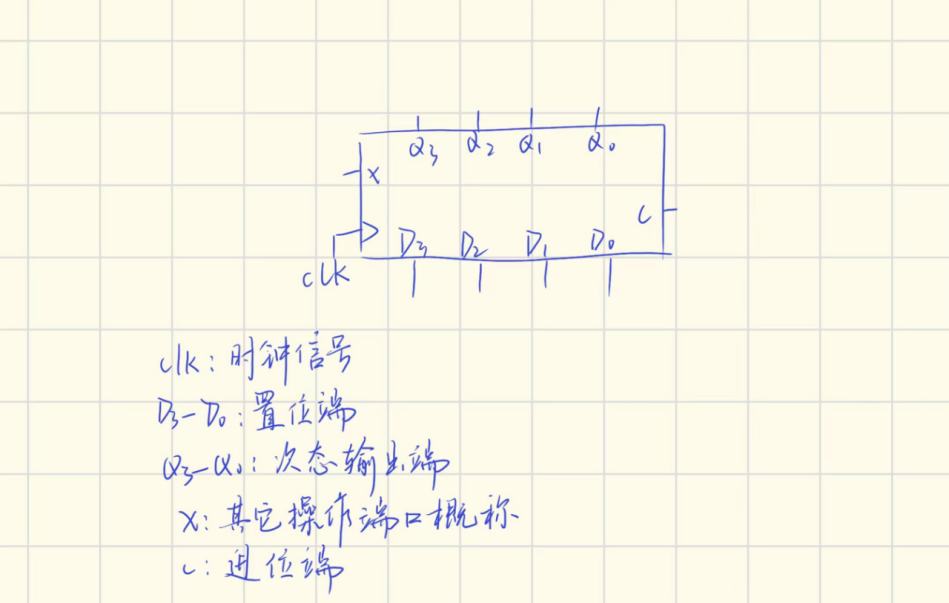 Q₃ Q₂ Q₁ Q₀
X
C
D₃ D₂ D₁ D₀
CLK
clk：时钟信号
D₃—D₀：置位端
Q₃—Q₀：次态输出端
X：其它操作端口概称
C：进位端